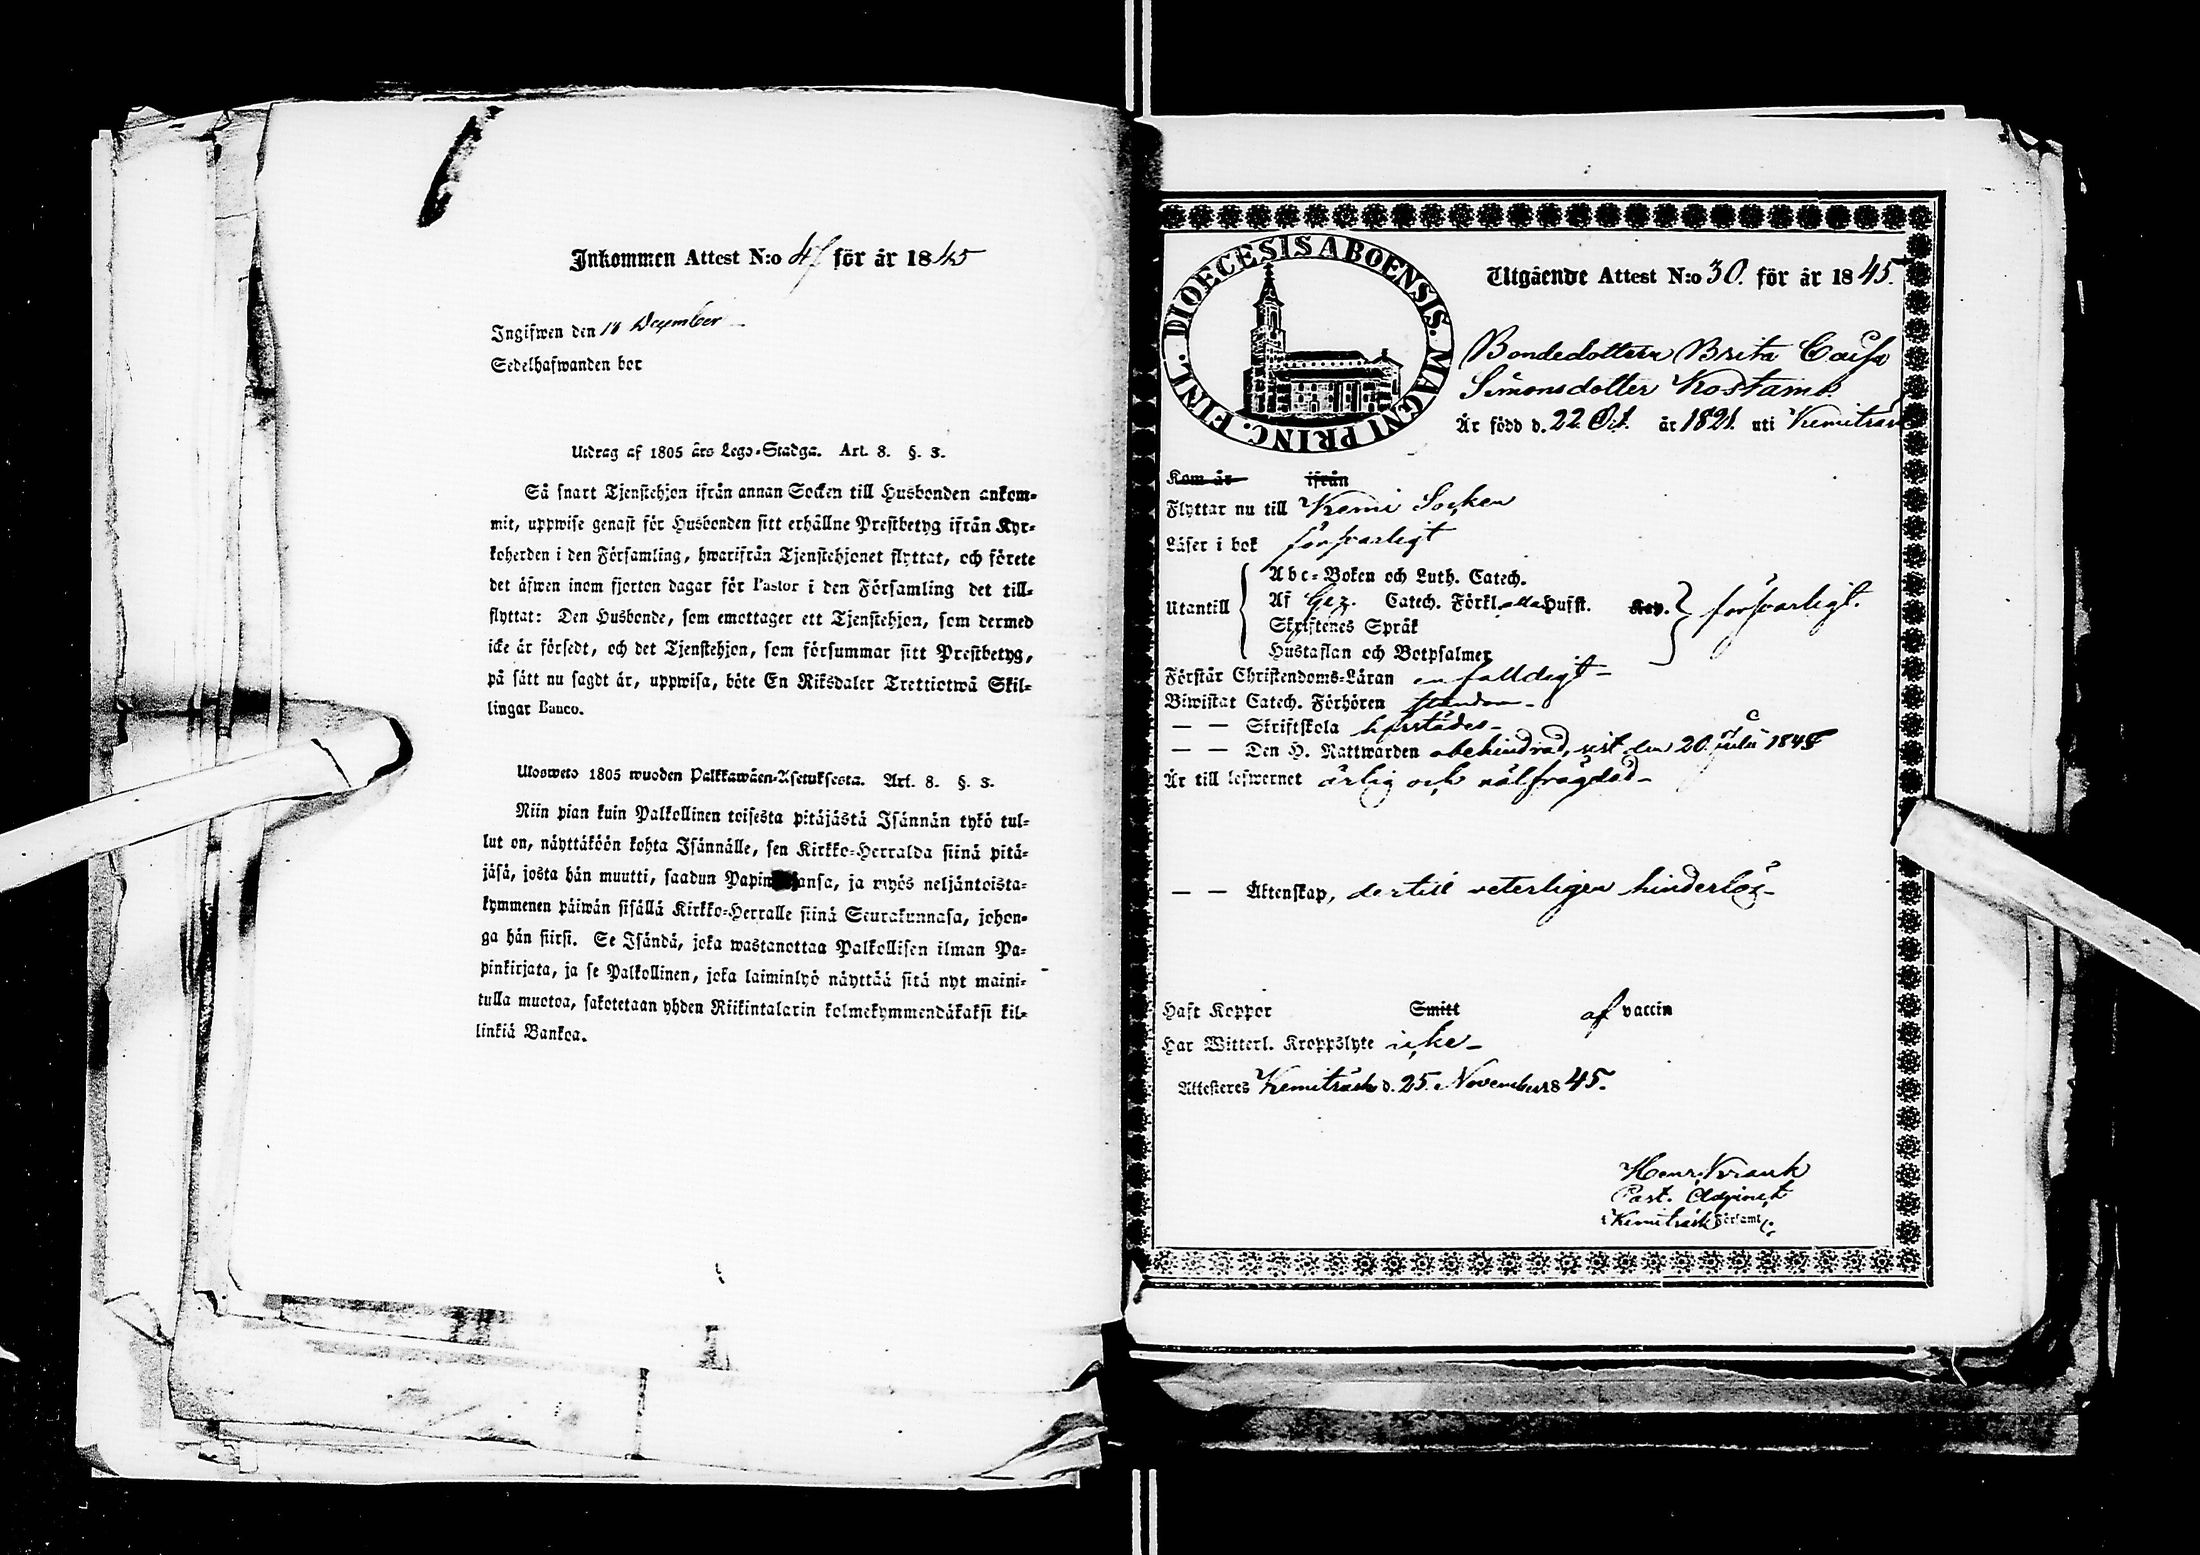 Inkommen Attest N:o 4 för år 1845
Ingifwen den 18 December
Sedelhafwanden bor
Utdrag af 1805 års Lego-Stadga. Art. 8. §. 3.
Så snart Tjenstehjon ifrån annan Socken till Husbonden ankom-
mit, uppwise genast för Husbonden sitt erhållne Prestbetyg ifrån Kyr-
koherden i den Församling, hwarifrån Tjenstehjonet flyttat, och förete
det äfwen inom fjorton dagar för Pastor i den Församling det till-
flyttat: Den Husbonde, som emottager ett Tjenstehjon, som dermed
icke är försedt, och det Tjenstehjon, som försummar sitt Prestbetyg,
på sätt nu sagdt är, uppwisa, böte En Riksdaler Trettiotwå Skil-
lingar Banco.
Ulosweto 1805 wuoden Palkkawäen-Asetuksesta. Art. 8. §. 3.
Niin pian kuin Palkollinen toisesta pitäjästä Isännän tykö tul-
lut on, näyttäköön kohta Isännälle, sen Kirkko-Herralda siinä pitä-
jäsä, josta hän muutti, saadun Papin ansa, ja myös neljäntoista-
kymmenen päiwän sisällä Kirkko-Herralle siinä Seurakunnasa, johon-
ga hän siirsi. Se Isändä, joka wastanottaa Palkollisen ilman Pa-
pinkirjata, ja se Palkollinen, joka laiminlyö näyttää sitä nyt maini-
tulla muotoa, sakotetaan yhden Riikintalarin kolmekymmendäkaksi kil-
linkiä Bankoa.
DIOECESIS ABOENSIS. MAGNI PRINC. FINL.
Utgående Attest N:o 30. för år 1845.
Bondedottern Brita Caisa
Simonsdotter Kostamo
Är född d. 22. Oct. år 1821. uti Kemiträsk
Kom år ifrån
Flyttar nu till Kemi Socken
Läser i bok försvarligt
Abc-Boken och Luth. Catech.
Utantill Af Gez. Catech. Förkl. Hufst. Kap. försvarligt.
Skriftenes Språk
Hustaflan och Botpsalmer
Förstår Christendoms-Läran enfalldigt
Biwistat Catech. Förhören stundom
— — Skriftskola härstädes
— — Den H. Nattwarden obehindrad, sist den 20. Julii 1845
Är till lefwernet ärlig och välfrägdad
— — Äktenskap, dertill veterligen hinderlös
Haft Koppor Smitt af vaccin
Har Witterl. Kroppslyte icke
Attesteres Kemiträsk d. 25. November 1845.
Henr. Frank
Past. Adjunct
i Kemiträsk Församl.